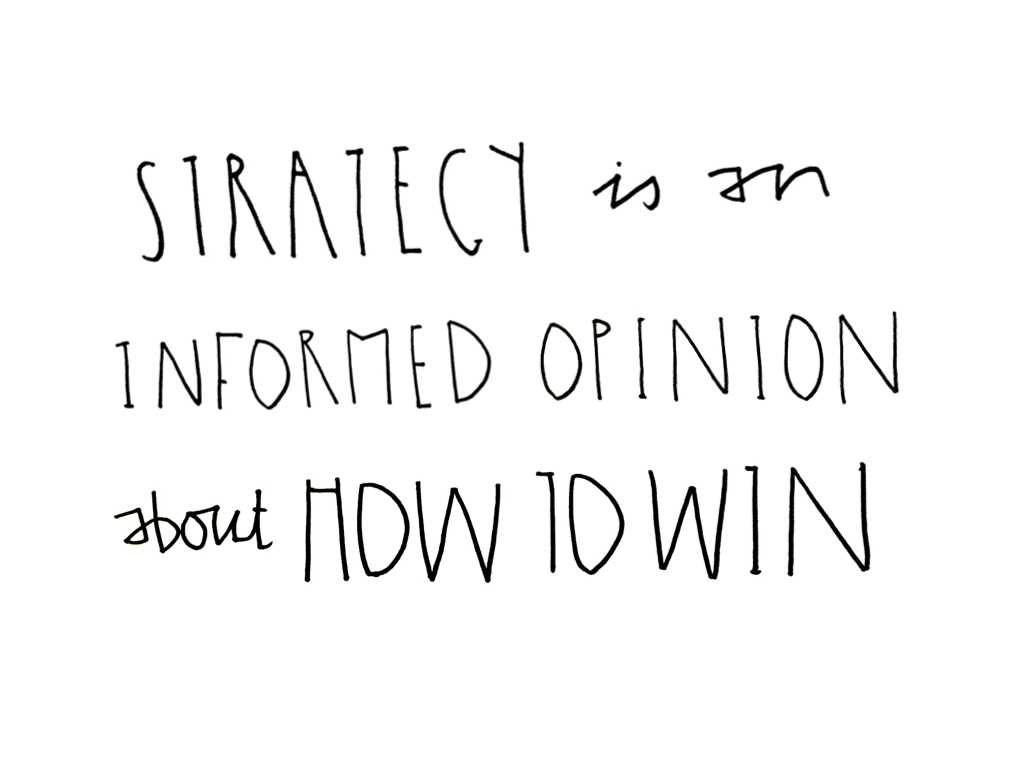 STRATEGY is an
INFORMED OPINION
about HOW TO WIN